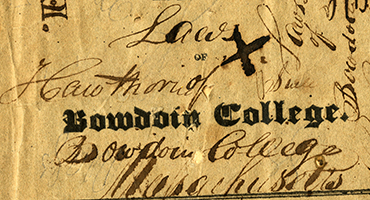 Laws
OF
Hawthorn of
Bowdoin College.
Bowdoin College
Massachusetts
Laws
of
Bowdoin